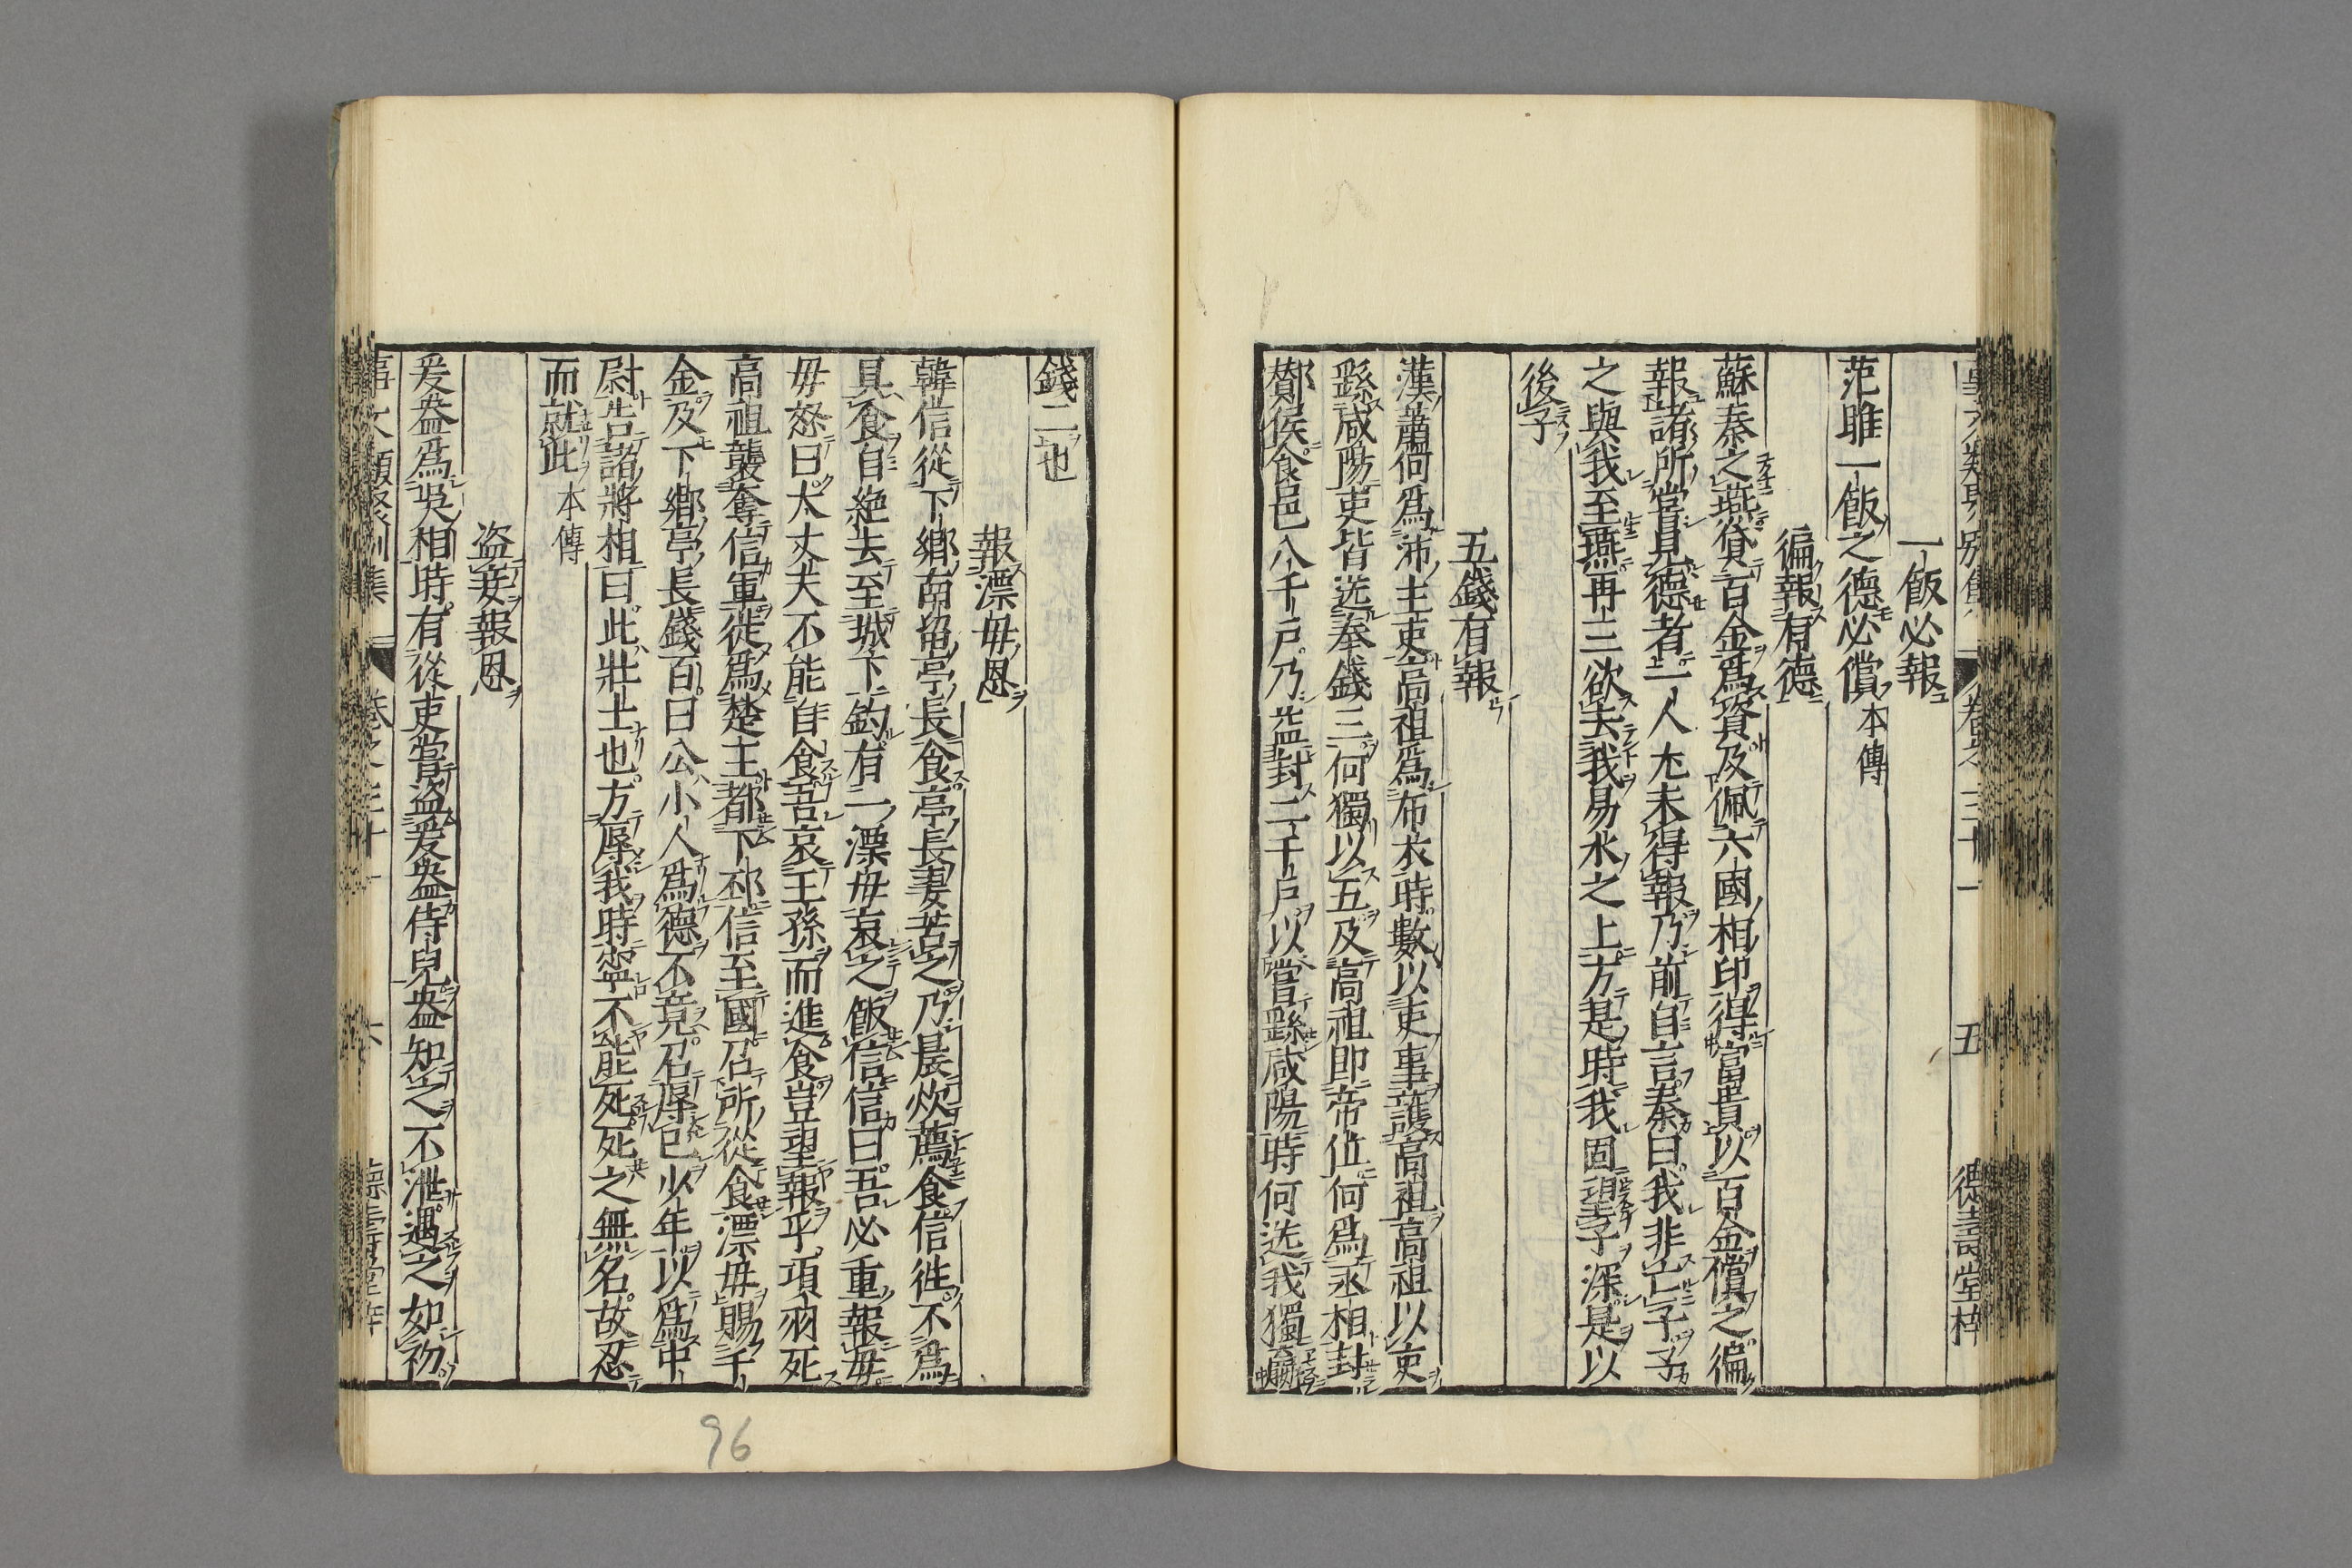 一飯必報
范雎一飯之德必償本傳
徧報有德
蘇秦之燕貸百金爲資及佩六國相印得富貴以百金償之徧
報諸所嘗見德者一人尤未得報乃前自言秦曰我非亡子子
之與我至燕再三欲去我易水之上方是時我固望子深是以
後子
五錢有報
漢蕭何爲沛主吏高祖爲布衣時數以吏事護高祖高祖以吏
繇咸陽吏皆送奉錢三何獨以五及高祖即帝位何爲丞相封
酇侯食邑八千戸乃益封二千戸以嘗繇咸陽時何送我獨贏
錢二也
報漂毋恩
韓信從下鄉南昌亭長食亭長妻苦之乃晨炊蓐食信徃不爲
具食自絶去至城下釣有一漂毋哀之飯信信曰吾必重報毋
毋怒曰大丈夫不能自食吾哀王孫而進食豈望報乎項羽死
高祖襲奪信軍徙爲楚王都下邳信至國召所從食漂毋賜千
金及下鄉亭長錢百曰公小人爲德不竟召辱已少年以爲中
尉告諸將相曰此壯士也方辱我時寧不能死死之無名故忍
而就此本傳
盗妾報恩
爰盎爲吳相時有從吏嘗盜爰盎侍兒盎知之不泄遇之如初